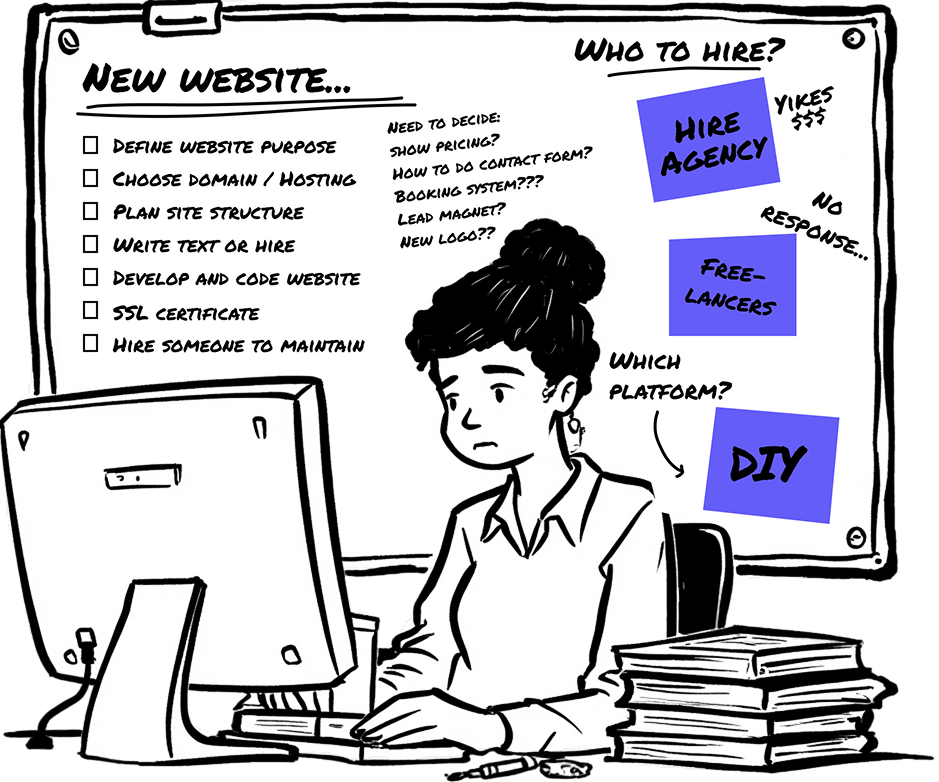 New website...
Define website purpose
Choose domain / Hosting
Plan site structure
Write text or hire
Develop and code website
SSL certificate
Hire someone to maintain
Need to decide:
show pricing?
How to do contact form?
Booking system???
Lead magnet?
New logo??
Who to hire?
Hire
Agency
Yikes
$$$
No
response...
Free-
lancers
Which
platform?
DIY